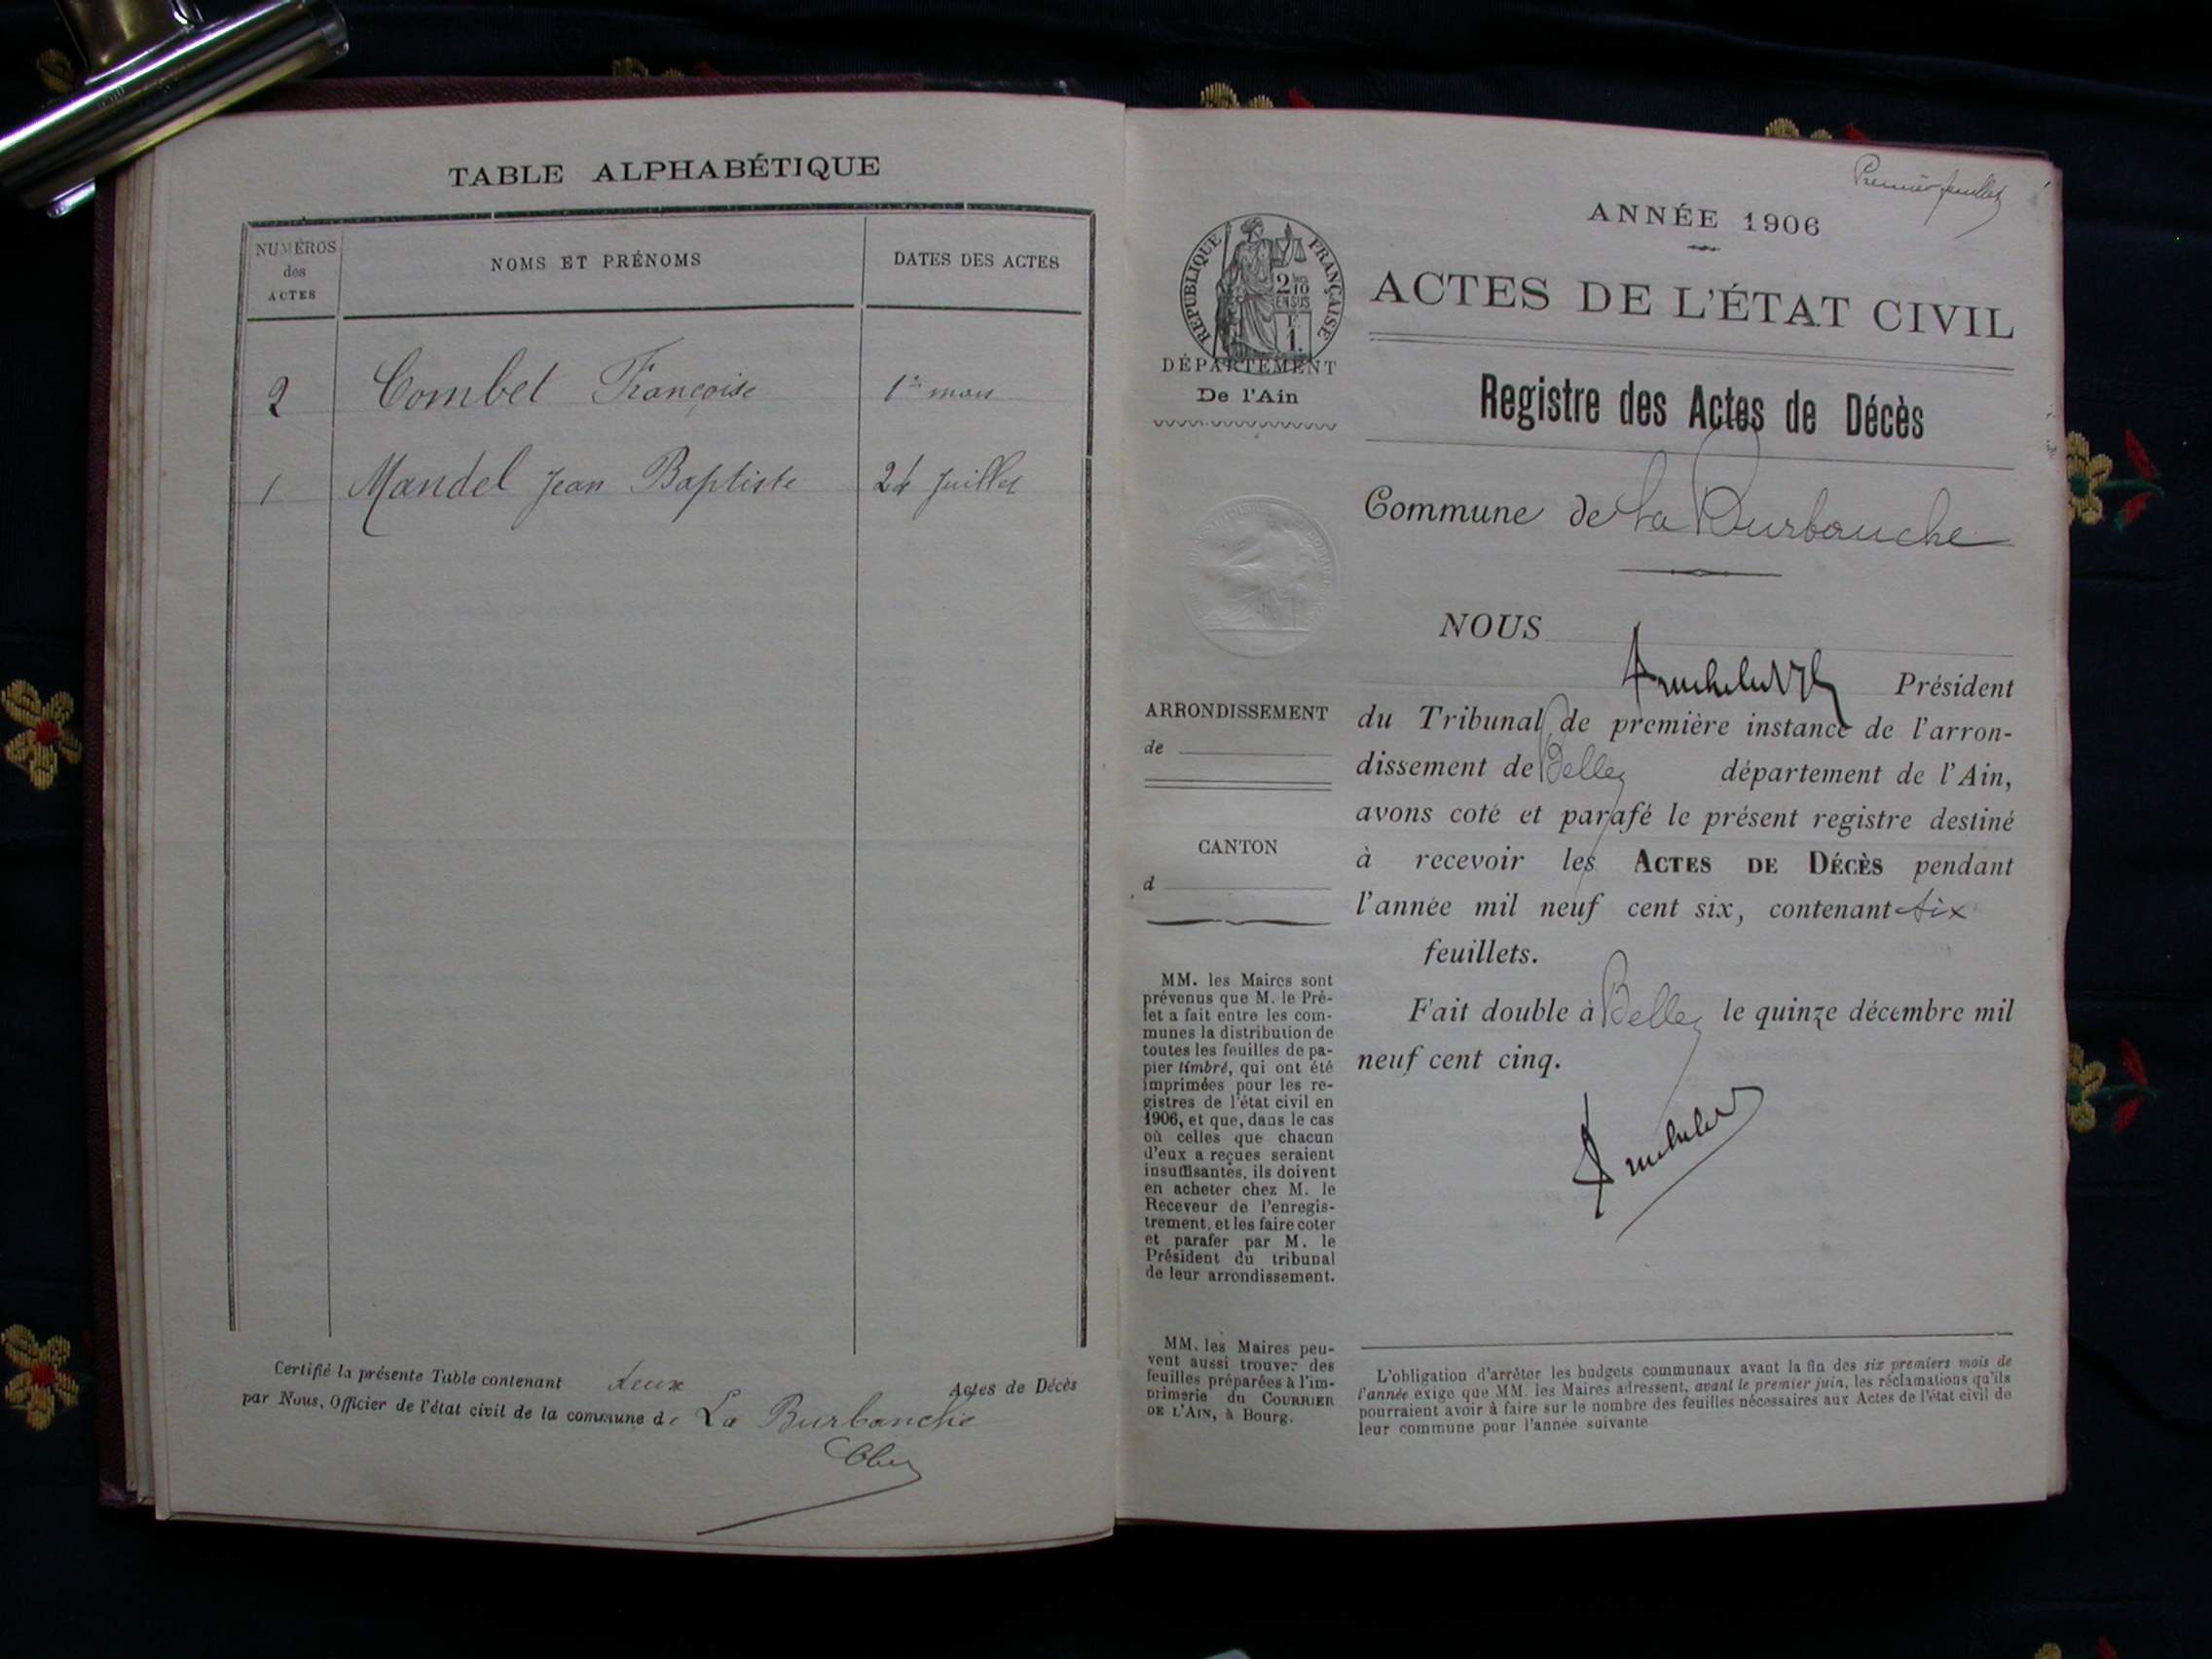 TABLE ALPHABÉTIQUE
NUMÉROS
des
ACTES
NOMS ET PRÉNOMS
DATES DES ACTES
2 Combet Françoise 1er mars
1 Mandel Jean Baptiste 24 Juillet
Certifié la présente Table contenant deux Actes de Décès
par Nous, Officier de l'état civil de la commune de La Burbanche
Premier feuillet
ANNÉE 1906
RÉPUBLIQUE FRANÇAISE
2/10
EN SUS
F.
1.
ACTES DE L'ÉTAT CIVIL
DÉPARTEMENT
De l'Ain
Registre des Actes de Décès
Commune de La Burbanche
NOUS
Président
ARRONDISSEMENT
de
du Tribunal de première instance de l'arron-
dissement de Belley département de l'Ain,
avons coté et parafé le présent registre destiné
CANTON
d
à recevoir les ACTES DE DÉCÈS pendant
l'année mil neuf cent six, contenant six
feuillets.
Fait double à Belley le quinze décembre mil
neuf cent cinq.
MM. les Maires sont
prévenus que M. le Pré-
fet a fait entre les com-
munes la distribution de
toutes les feuilles de pa-
pier timbré, qui ont été
imprimées pour les re-
gistres de l'état civil en
1906, et que, dans le cas
où celles que chacun
d'eux a reçues seraient
insuffisantes, ils doivent
en acheter chez M. le
Receveur de l'enregis-
trement, et les faire coter
et parafer par M. le
Président du tribunal
de leur arrondissement.
MM. les Maires peu-
vent aussi trouver des
feuilles préparées à l'im-
primerie du COURRIER
DE L'AIN, à Bourg.
L'obligation d'arrêter les budgets communaux avant la fin des six premiers mois de
l'année exige que MM. les Maires adressent, avant le premier juin, les réclamations qu'ils
pourraient avoir à faire sur le nombre des feuilles nécessaires aux Actes de l'état civil de
leur commune pour l'année suivante